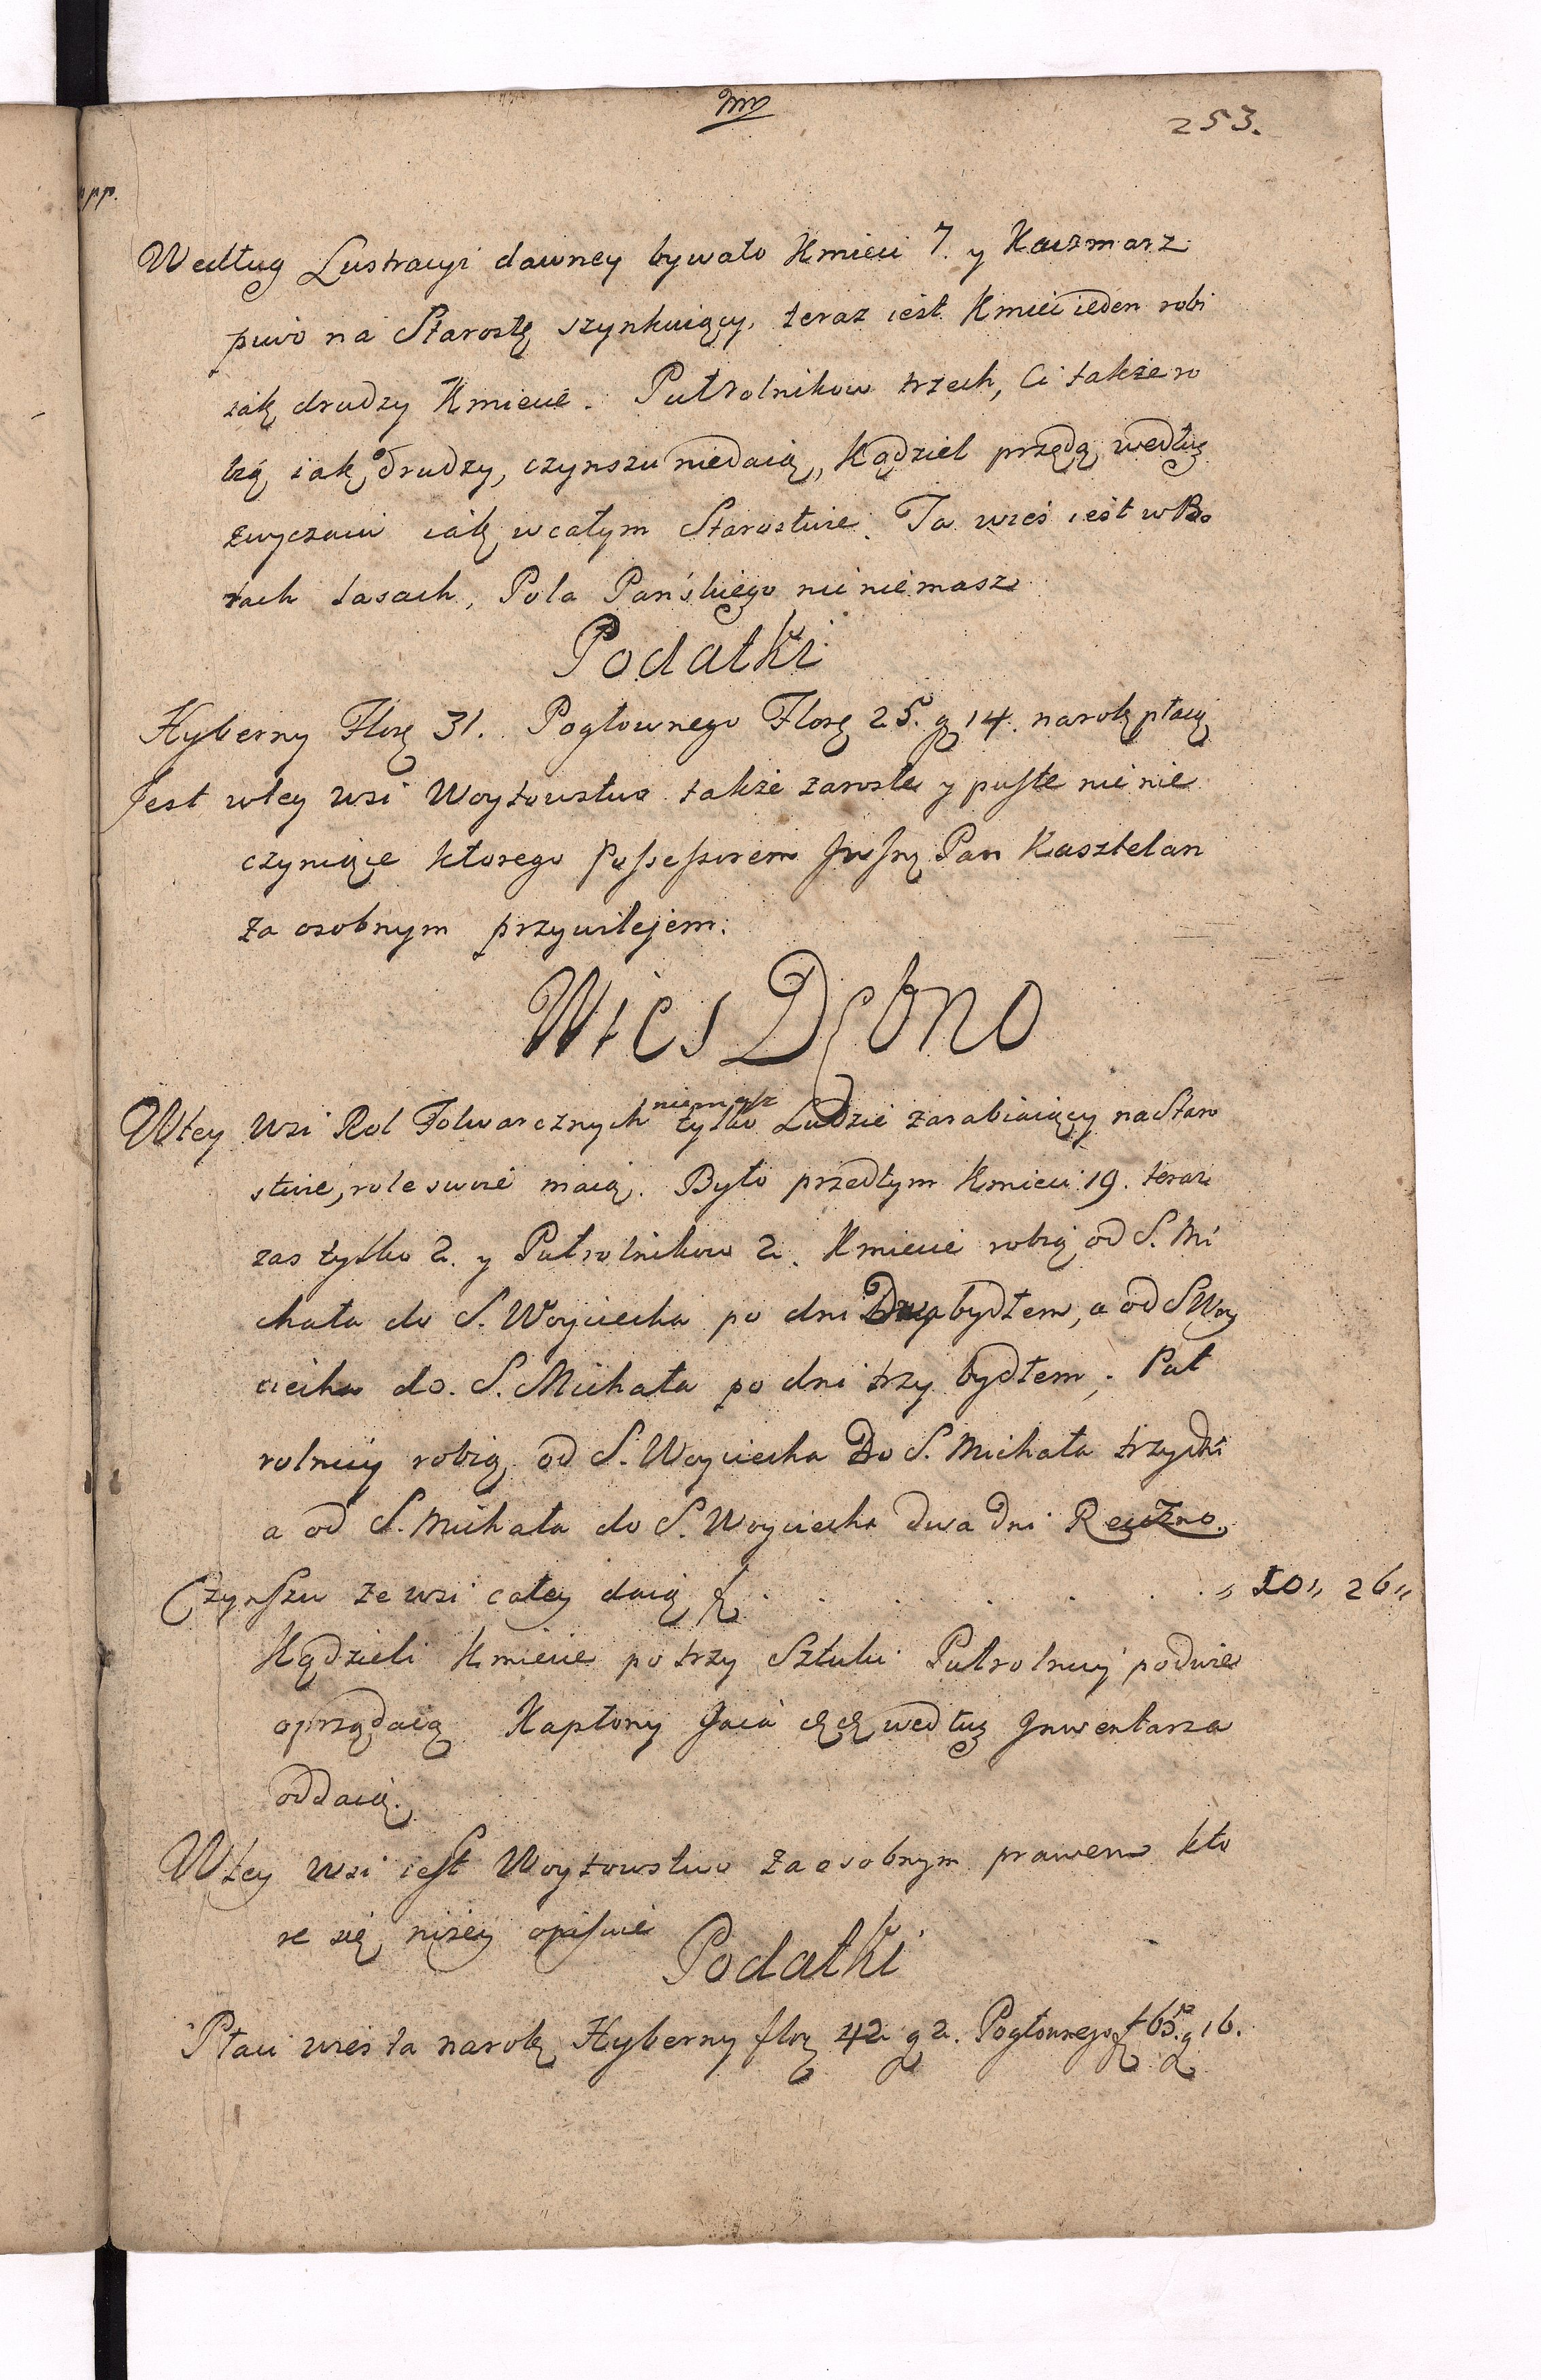 253.
Według Lustracyi dawney bywało Kmieci 7. y Kaczmarz
piwo na Starostę szynkuiący, teraz iest Kmieć ieden robi
iak drudzy Kmiecie. Pułrolnikow trzech, Ci także ro
bią iak drudzy, czynszu niedaią, Kądziel przędą według
zwyczaiu iak wcałym Starostwie. Ta wieś iest w Bo
rach lasach, Pola Pańskiego nic niemasz
Podatki
Hyberny Florę 31. Pogłownego Florę 25. g 14. narok płacą
Jest wtey wsi Woytowstwo także zarosłe y puste nic nie
czyniące ktorego Possessorem Pan Kasztelan
za osobnym przywilejem.
Wies Dębno
Wtey wsi Rol Folwarcznych niemasz tylko Ludzie zarabiaiący na Staro
stwie, role swoie maią. Było przedtym Kmieci 19. teraz
zas tylko 2. y Pułrolnikow 2. Kmiecie robią od S. Mi
chała do S. Woyciecha po dni Dwa bydłem, a od S Woy
ciecha do. S. Michała po dni trzy bydłem, Puł
rolnicy robią od S. Woyciecha Do S. Michała trzy dni
a od S. Michała do S. Woyciecha dwa dni Ręczno.
Czynszu ze wsi całey daią f . . . . . . . „ 10 „ 26 „
Kądzieli Kmiecie po trzy Sztuki Pułrolnicy podwie
oprządaią Kapłony Jaia według Inwentarza
oddaią.
Wtey wsi iest Woytowstwo za osobnym prawem kto
re się niżey opisuie
Podatki
Płaci wieś ta narok Hyberny flor 42 g 2. Pogłownego f 65. g 16.